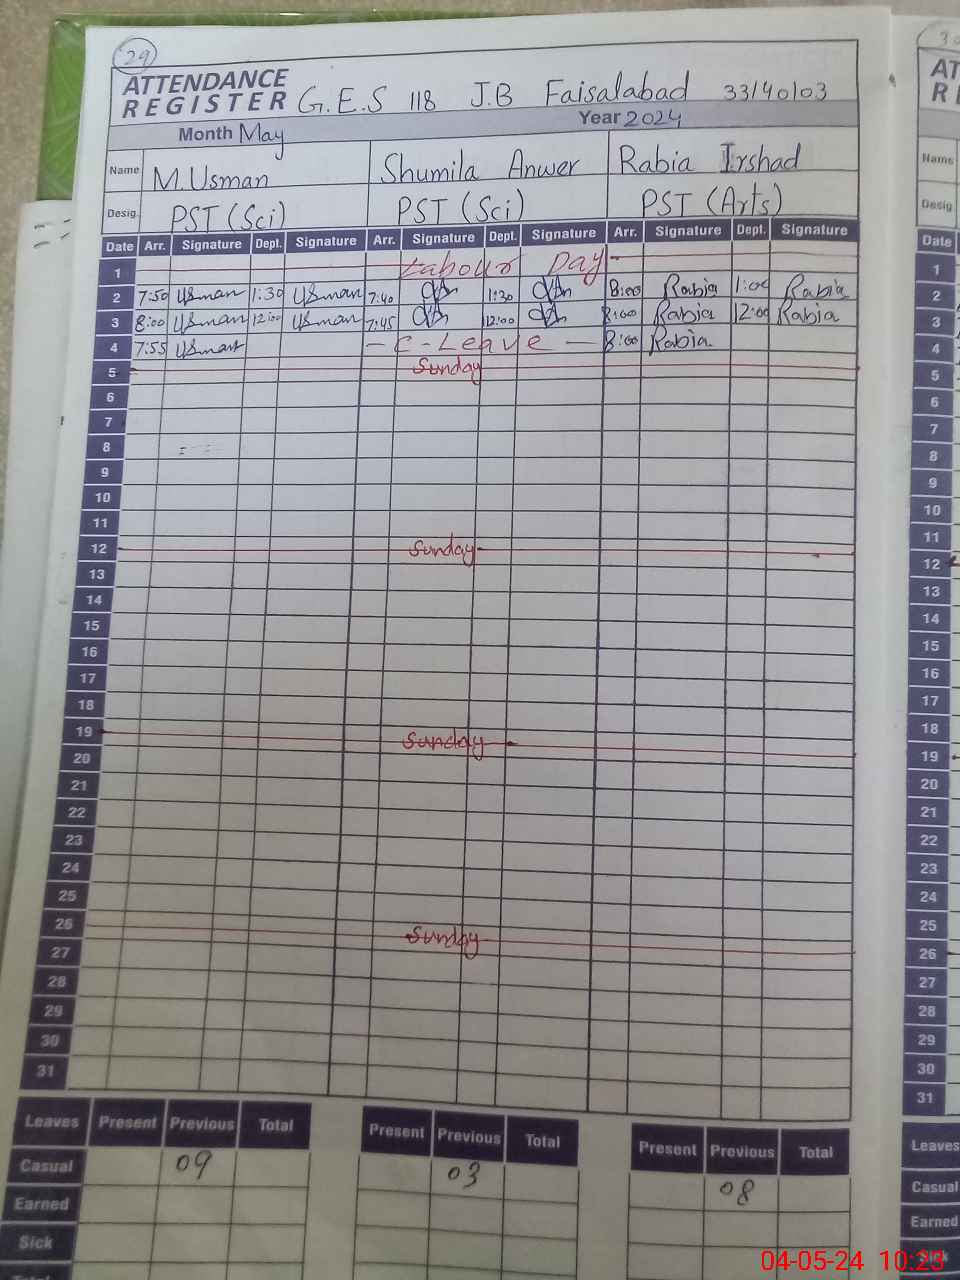 29
ATTENDANCE
REGISTER G.E.S 118 J.B Faisalabad 33140103
Month May Year 2024
Name M.Usman Shumila Anwer Rabia Irshad
Desig. PST (Sci) PST (Sci) PST (Arts)
Date Arr. Signature Dept. Signature Arr. Signature Dept. Signature Arr. Signature Dept. Signature
1 Labour Day
2 7:50 Usman 1:30 Usman 7:40 1:30 8:00 Rabia 1:00 Rabia
3 8:00 Usman 12:00 Usman 7:45 12:00 8:00 Rabia 12:00 Rabia
4 7:55 Usman - C-Leave - 8:00 Rabia
5 Sunday
6
7
8
9
10
11
12 Sunday
13
14
15
16
17
18
19 Sunday
20
21
22
23
24
25
26 Sunday
27
28
29
30
31
Leaves Present Previous Total Present Previous Total Present Previous Total
Casual 09 03 08
Earned
Sick
Total
AT
Name
Desig
Date
1
2
3
4
5
6
7
8
9
10
11
12
13
14
15
16
17
18
19
20
21
22
23
24
25
26
27
28
29
30
31
Leaves
Casual
Earned
Sick
04-05-24 10:23